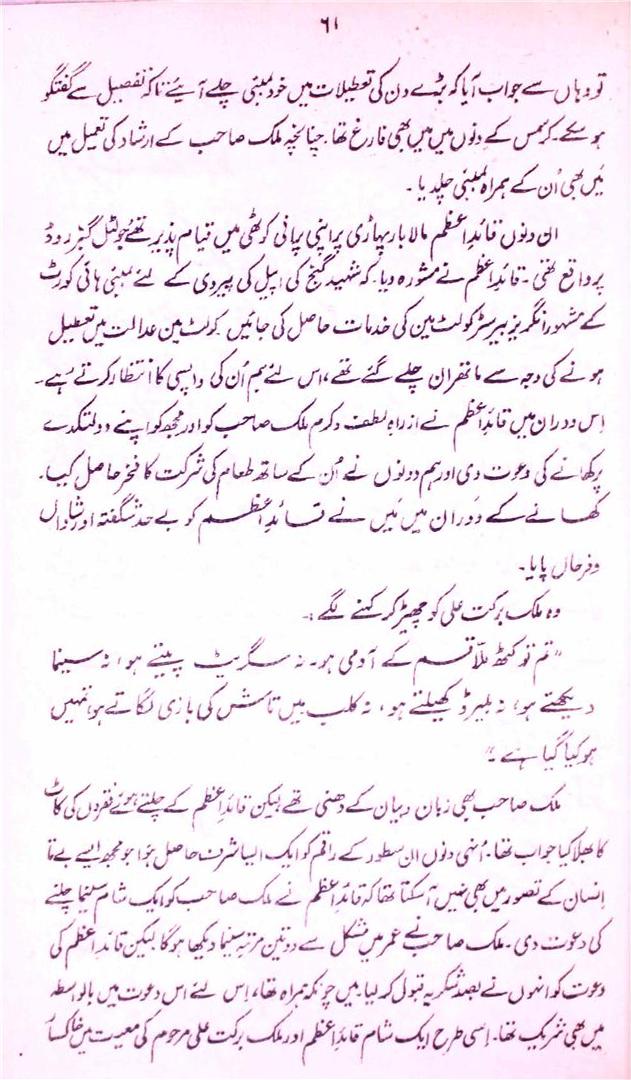 ۶۱
تو وہاں سے جواب آیا کہ بڑے دن کی تعطیلات میں خود بمبئی چلے آیئے تاکہ تفصیل سے گفتگو
ہو سکے۔ کرسمس کے دنوں میں میں بھی فارغ تھا۔ چنانچہ ملک صاحب کے ارشاد کی تعمیل میں
میں بھی اُن کے ہمراہ بمبئی چلدیا۔
ان دنوں قائداعظم مالا بار پہاڑی پر اپنی پرانی کوٹھی میں قیام پذیر تھے جو لٹل گبز روڈ
پر واقع تھی۔ قائداعظم نے مشورہ دیا۔ کہ شہید گنج کی اپیل کی پیروی کے لئے بمبئی ہائی کورٹ
کے مشہور انگریز بیرسٹر کولٹ مین کی خدمات حاصل کی جائیں۔ کولٹ مین عدالت میں تعطیل
ہونے کی وجہ سے ماتھران چلے گئے تھے، اس لئے ہم اُن کی واپسی کا انتظار کرتے رہے۔
اِس دوران میں قائداعظم نے ازراہِ لطف و کرم ملک صاحب کو اور مجھ کو اپنے دولتکدے
پر کھانے کی دعوت دی اور ہم دونوں نے اُن کے ساتھ طعام کی شرکت کا فخر حاصل کیا۔
کھانے کے دَوران میں مَیں نے قائداعظم کو بے حد شگفتہ اور شاداں
و فرحاں پایا۔
وہ ملک برکت علی کو چھیڑ کر کہنے لگے:۔
"تم تو کٹھ ملّا قسم کے آدمی ہو۔ نہ سگریٹ پیتے ہو، نہ سینما
دیکھتے ہو، نہ بلیرڈ کھیلتے ہو، نہ کلب میں تاش کی بازی لگاتے ہو، تمہیں
ہو کیا گیا ہے۔"
ملک صاحب بھی زبان و بیان کے دھنی تھے لیکن قائداعظم کے چلتے ہوئے فقروں کی کاٹ
کا بھلا کیا جواب تھا۔ اُنہی دنوں ان سطور کے راقم کو ایک ایسا شرف حاصل ہوا جو مجھ ایسے بے نا
انسان کے تصور میں بھی نہیں آ سکتا تھا کہ قائداعظم نے ملک صاحب کو ایک شام سینما چلنے
کی دعوت دی۔ ملک صاحب نے عمر میں مشکل سے دو تین مرتبہ سینما دیکھا ہوگا لیکن قائداعظم کی
دعوت کو انہوں نے بصد شکریہ قبول کر لیا۔ میں چونکہ ہمراہ تھا، اِس لئے اس دعوت میں بالواسطہ
میں بھی شریک تھا۔ اِسی طرح ایک شام قائداعظم اور ملک برکت علی مرحوم کی معیت میں خاکسار